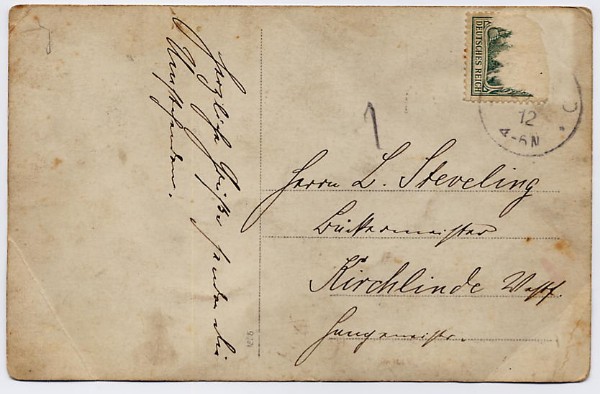 Herzliche Grüße sendet die
Umstehenden.
DEUTSCHES REICH
12
4-5N
C
1
Herrn L. Steveling
Bäckermeister
Kirchlinde Westf.